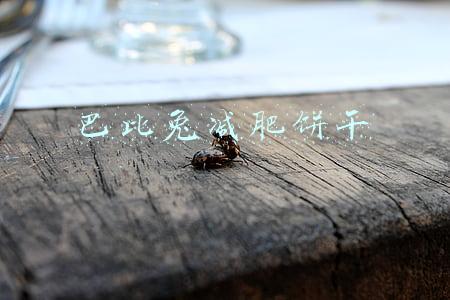 巴比兔减肥饼干